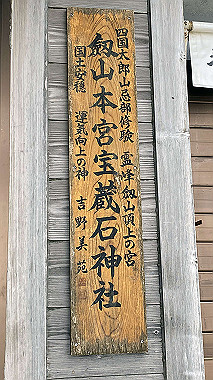 四国太郎山忌部修験 霊峰剱山頂上の宮
劔山本宮宝蔵石神社
国土安穏 運気向上の神 吉野美苑